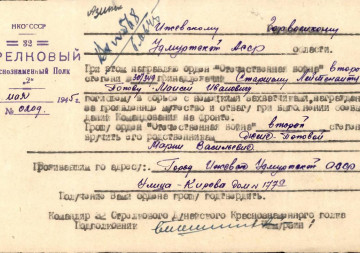 НКО СССР
32
СТРЕЛКОВЫЙ
Краснознаменный Полк
"2"
мая 1945 г.
№ 0209.
Ижевскому Горвоенкому
Удмуртской АССР области.
При этом направляю орден "Отечественная война" второй
степени принадлежащий Старшему Лейтенанту
Зотову Моисей Иванович
погибшему в борьбе с немецкими захватчиками, награжден
за проявленные мужество и отвагу при выполнении
задания Командования на фронте.
Прошу орден "Отечественная война" второй степени
вручить его родственникам Жене - Зотовой
Марии Васильевне
Проживающим по адресу: Город Ижевск Удмуртской АССР
Улица - Кирова дом № 177
Получение Вами ордена прошу подтвердить.
Командир 32 Стрелкового Дунайского Краснознаменного полка
Подполковник